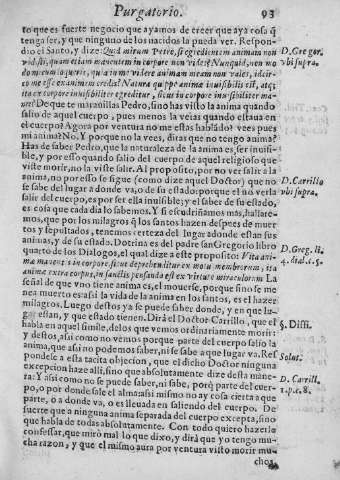 Purgatorio. 93
to que es fuerte negocio que ayamos de creer que aya cosa q̃
tenga ser, y que ninguno de los nacidos la pueda ver. Respon-
dio el Santo, y dize: Quid mirum Petre, si egredientem animam non
vidisti, quam etiam manentem in corpore non vides? Nunquid, non mo
do mecum loqueris, quia in me videre animam meam non vales, idcir-
co me esse exanimem credis? Natura quippè animæ invisibilis est, atq;
ita ex corpore invisibiliter egreditur, sicut in corpore invisibiliter ma-
net? De que te maravillas Pedro, sino has visto la anima quando
salio de aquel cuerpo, pues menos la veias quando estaua en
el cuerpo? Agora por ventura no me estas hablãdo? vees pues
mi anima? No. Y porque no la vees, diras que no tengo anima?
Has de saber Pedro, que la naturaleza de la anima es, ser inuisi-
ble, y por esso quando salio del cuerpo de aquel religioso que
viste morir, no la viste salir. Al proposito, por no ver salir a la
anima, no por esso se sigue (como dize aquel Doctor) que no
se sabe del lugar a donde va, o de su estado: porque el no verla
salir del cuerpo, es por ser ella inuisible; y el saber de su estado,
es cosa que cada dia lo sabemos. Y si escudriñamos mas, hallare-
mos, que por los milagros q̃ los santos hazen despues de muer
tos y sepultados, tenemos certeza del lugar adonde estan sus
animas, y de su estado. Dotrina es del padre san Gregorio libro
quarto de los Dialogos, el qual dize a este proposito: Vita ani-
mæ manens in corpore sicut deprehenditur ex motu membrorum, ita
animæ extra corpus, in sanctis pensanda est ex virtute miraculorum La
señal de que vno tiene anima es, el mouerse, porque sino se me
nea muerto està: i la vida de la anima en los santos, es el hazer
milagros. Luego destos ya se puede saber donde, y en que lu-
gar estan, y que estado tienen. Dirà el Doctor Carrillo, que el
habla en aquel simile, de los que vemos ordinariamente morir:
y destos, assi como no vemos porque parte del cuerpo salio la
anima, que assi no podemos saber, ni se sabe aque lugar va. Res
pondese a esta tacita objecion, que el dicho Doctor ninguna
excepcion haze alli, sino que absolutamente dize desta mane-
ra: Y assi como no se puede saber, ni sabe, porq̃ parte del cuer-
po, o por donde sale el alma: assi mismo no ay cosa cierta a que
parte, o a donde va, o es lleuada en saliendo del cuerpo. De
fuerte que a ninguna anima separada del cuerpo excepta, sino
que habla de todas absolutamente. Con todo quiero hazerlo
confessar, que mirò mal lo que dixo, y dirà que yo tengo mu-
cha razon, y que el mismo aura por ventura visto morir mu-
chos
D. Gregor.
vbi supra.
D. Carrillo
vbi supra.
D. Greg. li.
4. dial. c. 5.
§. Diffi.
Solut.
D. Carrill.
1. p. c. 8.